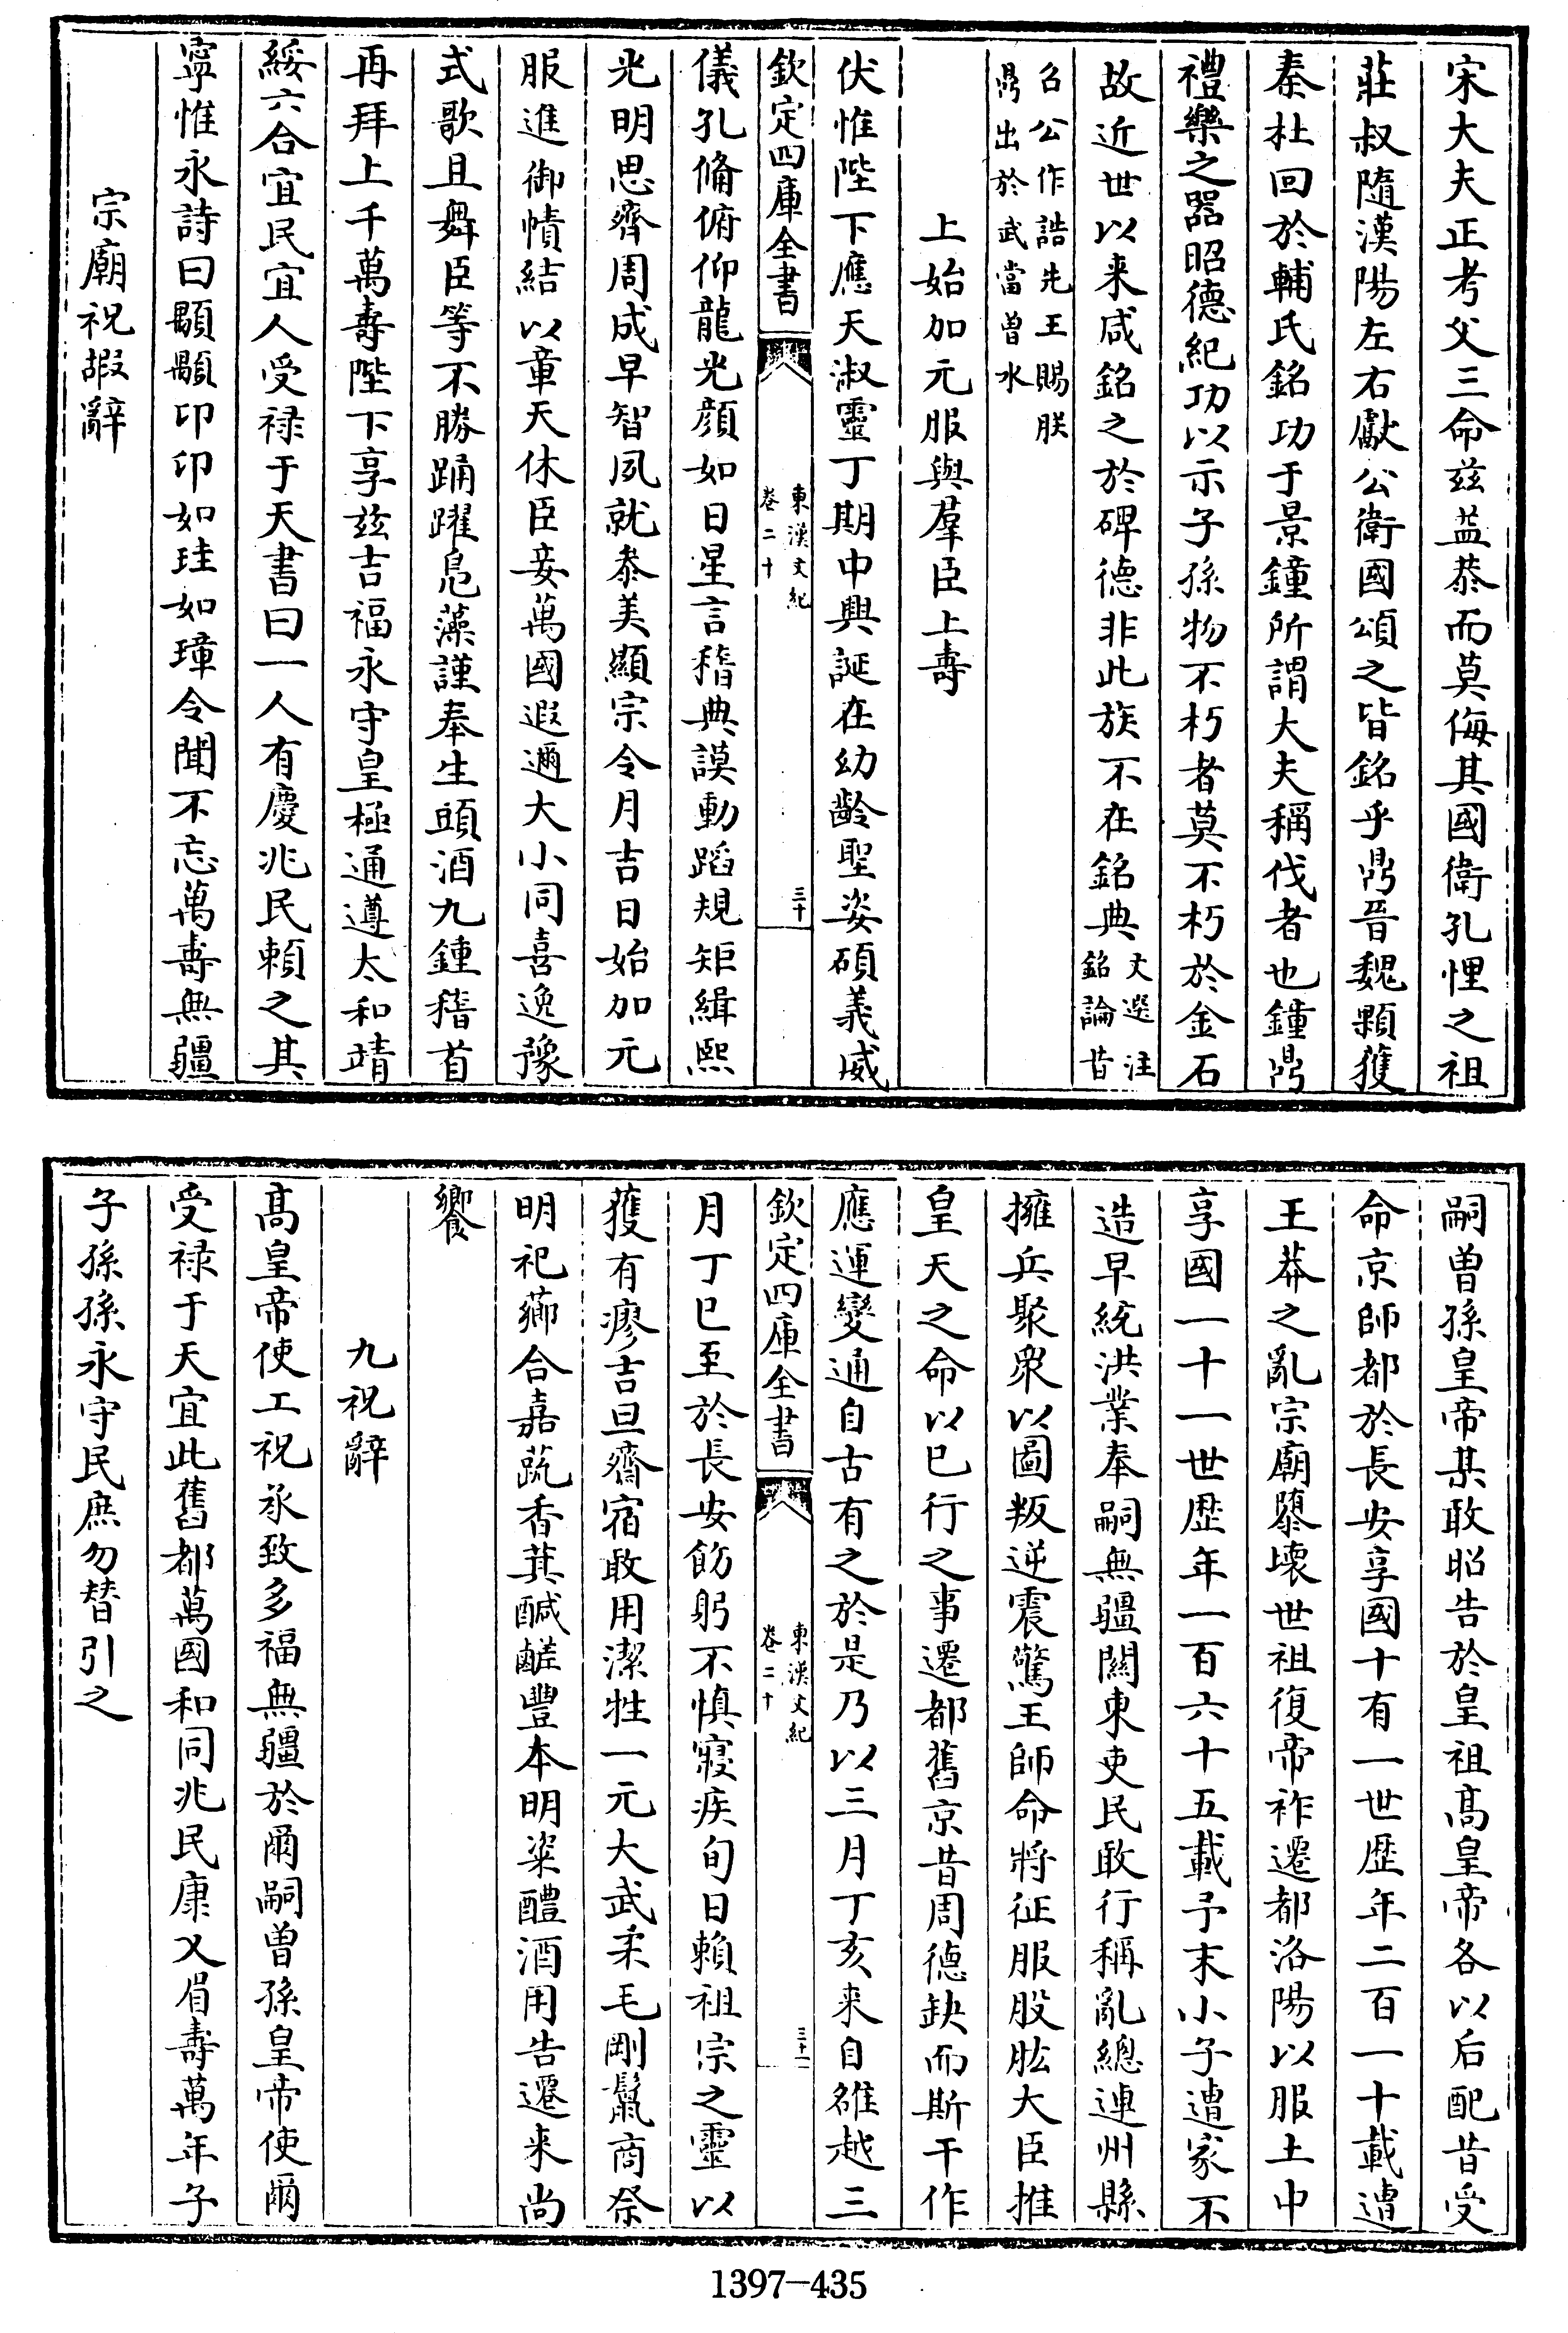 宋大夫正考父三命兹益恭而莫侮其國衛孔悝之祖
莊叔隨漢陽左右獻公衛國頌之皆銘乎鼎晉魏顆獲
秦杜回於輔氏銘功于景鐘所謂大夫稱伐者也鐘鼎
禮樂之器昭德紀功以示子孫物不朽者莫不朽於金石
故近世以来咸銘之於碑德非此族不在銘典文選注
銘論昔
召公作誥先王賜朕
鼎出於武當曽水
上始加元服與羣臣上壽
伏惟陛下應天淑靈丁期中興誕在幼齡聖姿碩義威
欽定四庫全書
東漢文紀
卷二十
三十
儀孔脩俯仰龍光顔如日星言稽典謨動蹈規矩緝熙
光明思齊周成早智夙就叅美顯宗令月吉日始加元
服進御幘結以章天休臣妾萬國遐邇大小同喜逸豫
式歌且舞臣等不勝踊躍凫藻謹奉生頭酒九鍾稽首
再拜上千萬壽陛下享兹吉福永守皇極通遵太和靖
綏六合宜民宜人受禄于天書曰一人有慶兆民賴之其
寧惟永詩曰顒顒卬卬如珪如璋令聞不忘萬壽無疆
宗廟祝嘏辭
嗣曽孫皇帝某敢昭告於皇祖髙皇帝各以后配昔受
命京師都於長安享國十有一世歴年二百一十載遭
王莽之亂宗廟隳壊世祖復帝祚遷都洛陽以服土中
享國一十一世歴年一百六十五載予末小子遭家不
造早統洪業奉嗣無疆闗東吏民敢行稱亂總連州縣
擁兵聚衆以圖叛逆震驚王師命將征服股肱大臣推
皇天之命以已行之事遷都舊京昔周德缺而斯干作
應運變通自古有之於是乃以三月丁亥来自雒越三
欽定四庫全書
東漢文紀
卷二十
三十一
月丁巳至於長安飭躬不慎寢疾旬日賴祖宗之靈以
獲有瘳吉旦齊宿敢用潔牲一元大武柔毛剛鬛商祭
明祀薌合嘉蔬香萁醎鹺豐本明粢醴酒用告遷来尚
饗
九祝辭
髙皇帝使工祝承致多福無疆於爾嗣曽孫皇帝使爾
受禄于天宜此舊都萬國和同兆民康乂眉壽萬年子
子孫孫永守民庶勿替引之
1397-435